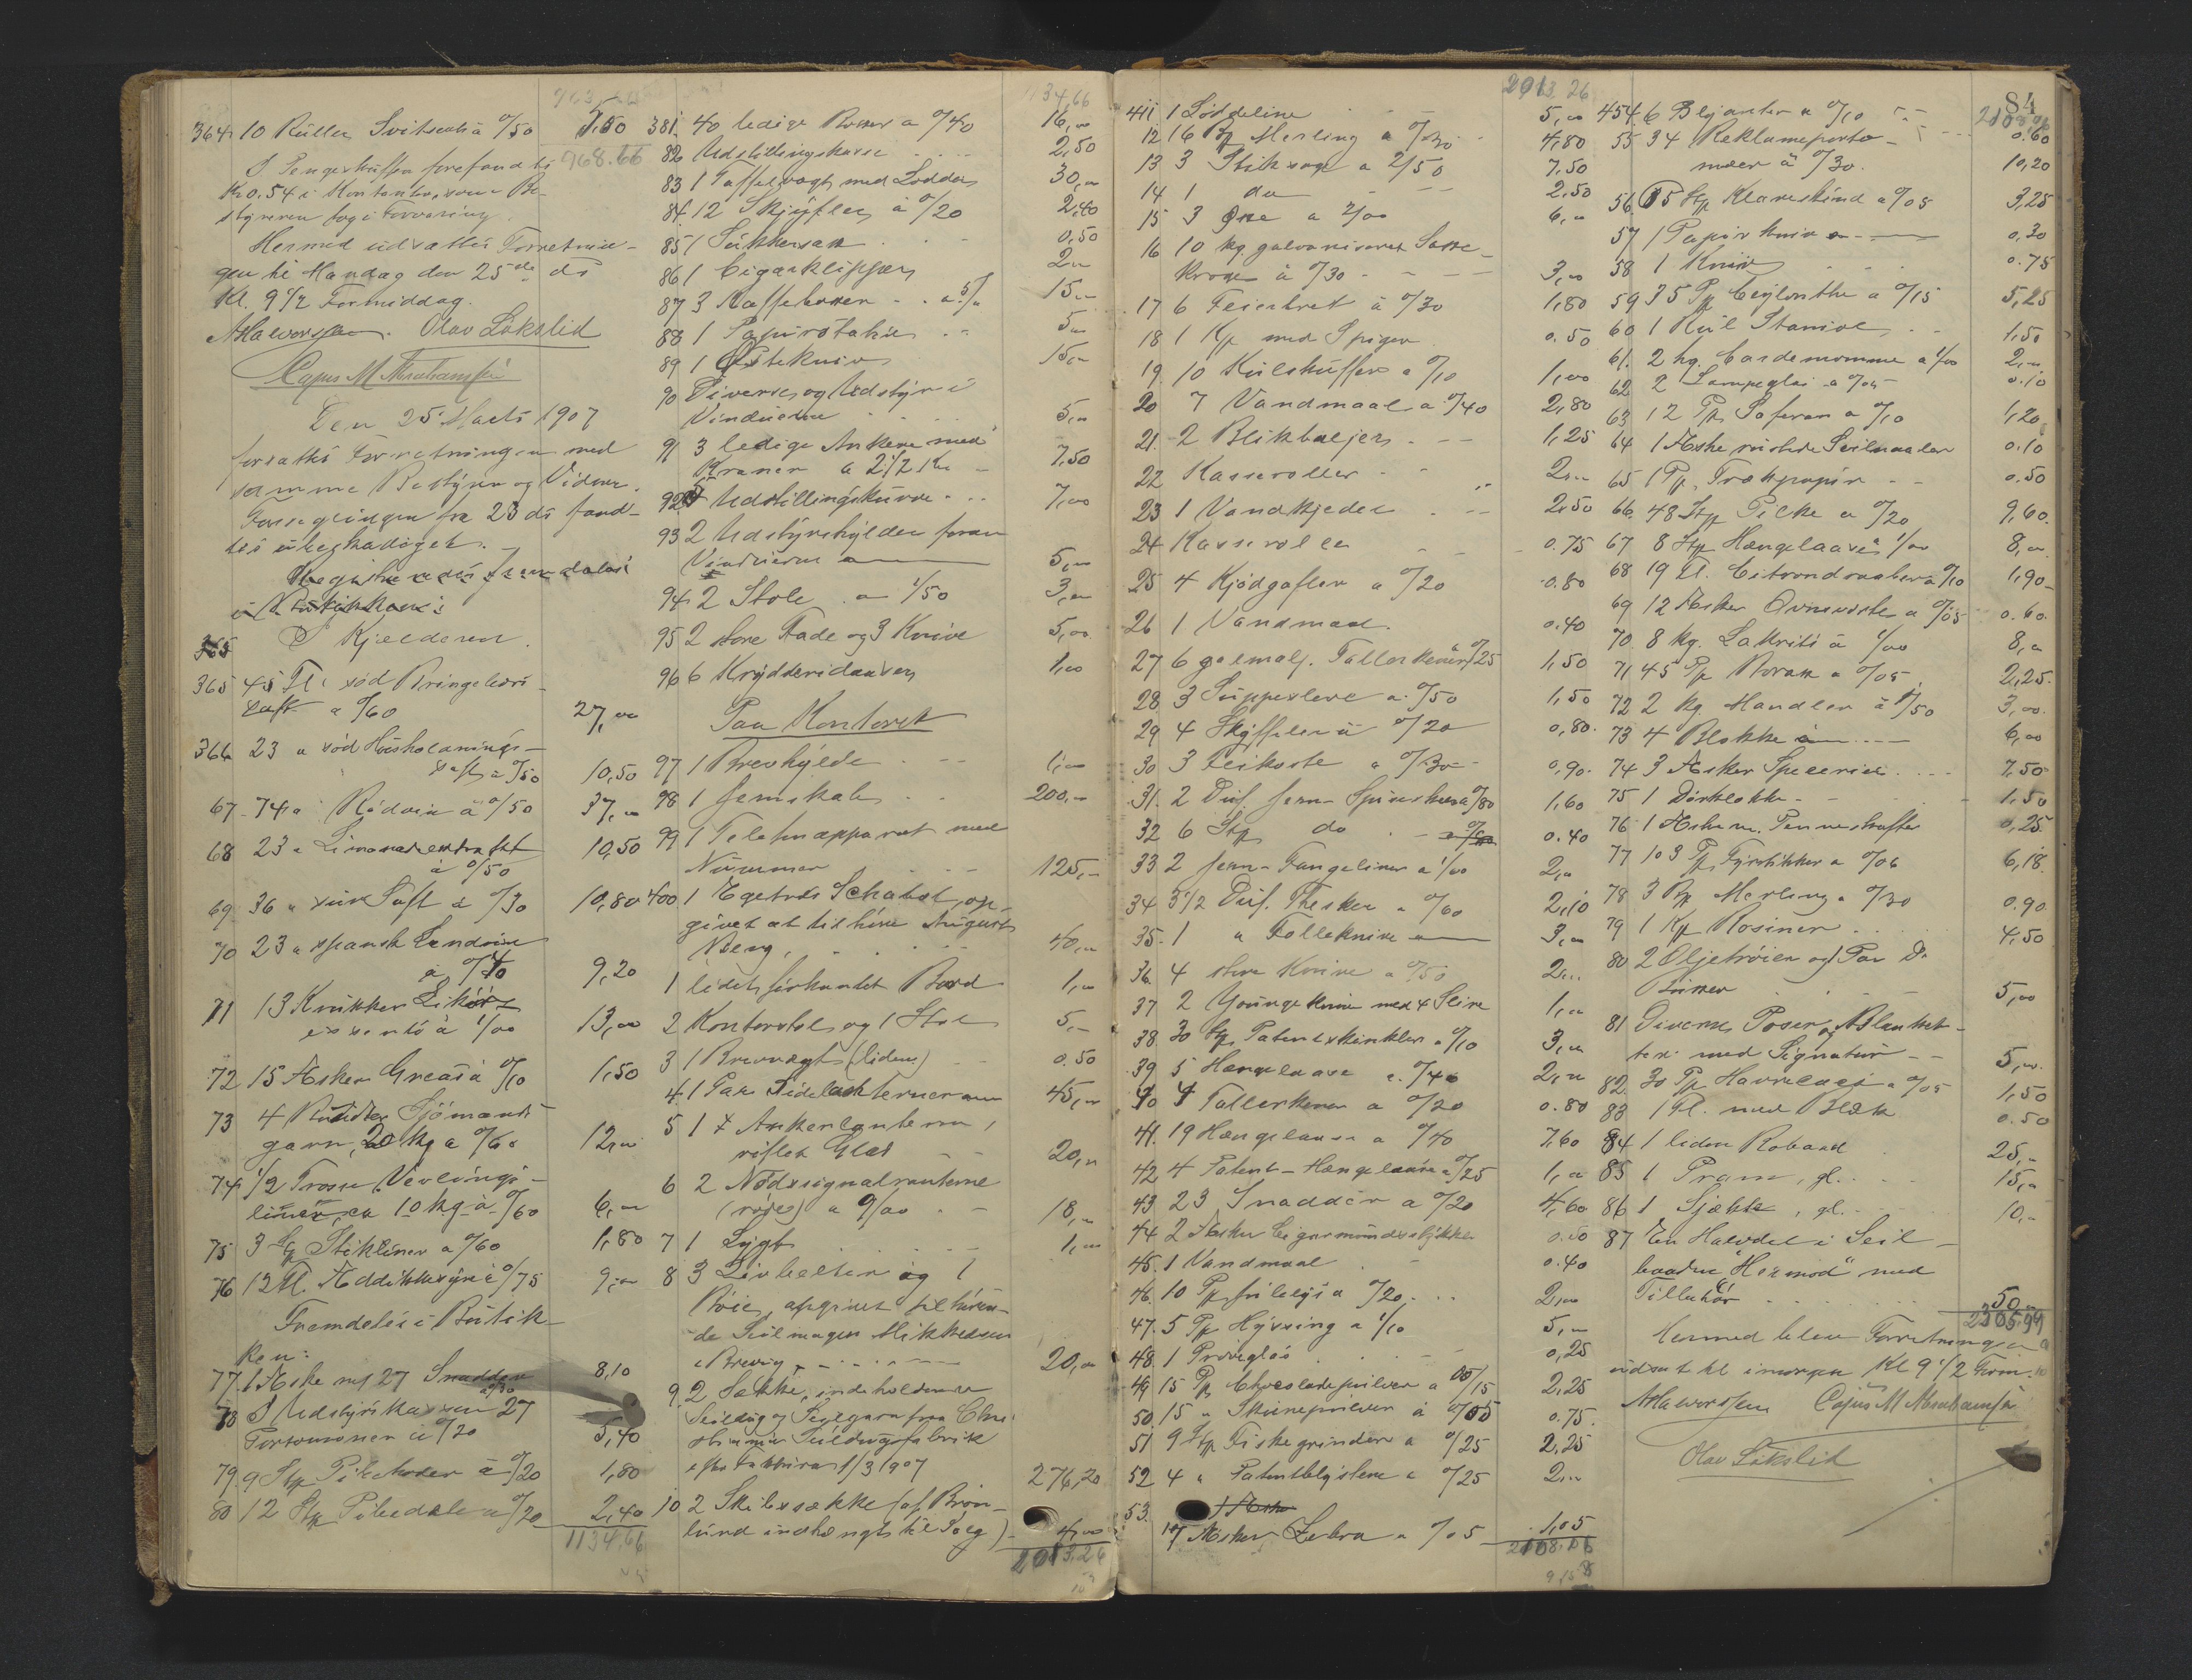 364 10 Ruller Svitsents à 0/50 5,50
768.66
I Pengeskuffen forefandtes
Kr 0.54 i Kontanter, som Be-
styreren tog i Forvaring.
Hermed udsattes Forretnin-
gen til Mandag den 25de ds
Kl. 9 1/2 Formiddag.
AHalvorssen. Olav Lökslid
Cajus M Abrahamsen
Den 25 Marts 1907
forsattes Forretningen med
samme Bestyrer og Vidner.
Forseglingen fra 23 ds fand-
tes ubeskadiget.
Registreredes fremdeles
i Butikken:
I Kjelderen.
365 45 Fl. söd Bringebærs-
saft a 0/60 27,00
366 23 " söd Husholdnings-
saft a 0/50 10,50
67 74 " Rödvin à 0/50 37,00
68 23 " Limonadeextrakt
à 0/50 10,50
69 36 " sur Saft a 0/30 10,80
70 23 " spansk Landvin
à 0/40 9,20
71 13 Krukker Likör-
essents à 1/00 13,00
72 15 Æsker Greas à 0/10 1,50
73 4 Sjömands-
garn, 20 kg a 0/60 12,00
74 1/2 Trosse Vevlings-
liner, ca 10 kg à 0/60 6,00
75 3 Stk Stikliner a 0/60 1,80
76 12 Fl. Æddikksyre à 0/75 9,00
Fremdeles i Butik-
ken:
77 1 Æske m/ 27 Snadder
a 0/30 8,10
78 I Udstyrskassen 27
Portemonær à 0/20 5,40
79 9 Stk Pibehoder à 0/20 1,80
80 12 Stk Pibedele a 0/20 2,40
1134,66
1134,66
381. 40 ledige Kasser a 0/40 16,00
82 Udstillingskasse 2,50
83 1 Taffelvægt med Lodder 30,00
84. 12 Skjyfler à 0/20 2,40
85 1 Sukkersax 0,50
86 1 Cigarklipper 2,00
87 3 Kaffebokser a 5/00 15,00
88 1 Papirstativ 5,00
89 1 Ostekniv 15,00
90 Diverse og Udstyr i
Vinduerne 5,00
91 3 ledige Ankere med
Kraner a 2 1/2 Kr 7,50
92 Udstillingskurve 7,00
93 2 Udstyrshylder foran
Vinduerne 5,00
94 2 Stole a 1/50 3,00
95 2 store Fade og 3 Knive 5,00
96 6 Krydderidaaser 1,00
Paa Kontoret
97 1 Brevhylde 1,00
98 1 Jernskab 200,00
99 1 Telefonapparat med
Nummer 125,-
400 1 Egetræs Schatol, op-
givet at tilhöre August
Nberg, 40,00
1 lidet firkantet Bord 1,00
2 Kontorstol og 1 Stol 5,-
3 1 Brevvægt (liden) 0.50
4 1 Par Sidelanterner 45,00
5 1 Ankerlanterne,
riflet Glas 20,00
6 2 Nødssignallanterne
(røde) a 9/00 18,00
7 1 Lygt 1,00
8 3 Livbelter og 1
Böie, opgivet tilhören-
de Seilmager Mikkelsen
i Brevig 20,00
9 2 Sække, indeholdende
Seildug og Seglgarn fra Chri-
stiania Seildugsfabrik
efter Faktura 1/3 1907 276,20
10 2 Skibssække (af Brön-
lund indhængt til Salg) 4,00
2013,26
2013,26
411 1 Loddeline 5,00
12 16 Stk Merling a 0/30 4,80
13 3 Stiksage a 2/50 7,50
14 1 do 2,50
15 3 Øxe a 2/00 6,00
16 10 kg. galvaniseret Sasse-
kroge à 0/30 3,00
17 6 Feiebret à 0/30 1,80
18 1 Kp med Spiger 0.50
19 10 Kulskuffer a 0/10 1,00
20 7 Vandmaal a 0/40 2,80
21. 2 Blikbaljer 1,25
22 Kasseroller 2,00
23 1 Vandkjedel 2,50
24 Kasserolle 0.75
25 4 Kjödgafler a 0/20 0.80
26 1 Vandmaal. 0.40
27 6 galmalj. Tallerkener a 0/25 1,50
28 3 Suppeslere a 0/50 1,50
29 4 Skyffler à 0/20 0,80.
30 3 Feikoste a 0/30 0,90.
31. 2 Dus. Jern-Spiseskeer a 0/80 1,60
32 6 Stk do 0.40
33 2 Jern-Fangeliner a 1/00 2,00
34 3 1/2 Dus. Thesker a 0/60 2,10
35. 1 " Folleknive 3,00
36 4 store Knive a 0/50 2,00
37 2 Youngeknive med 4 Slire 1,00
38. 30 Stk Patentskinkler a 0/10 3,00
39 5 Hængelaase a. 0/40 2,00
40 4 Tallerkener a 0/20 0.80
41. 19 Hængelaase a 0/40 7.60
42 4 Patent-Hængelaase a 0/25 1,00
43 23 Snadder a 0/20 4,60
44 2 Æsker Cigarmundstykker 0.50
45. 1 Vandmaal 0.40
46. 10 Pk frilelys a 0/20 2,00
47. 5 Pk Hyssing a 1/10 5,00
48. 1 Pröveglas 0,25
49 15 Pk Chocoladepulver a 0/15 2,25
50. 15 " Skurepulver à 0/05 0.75.
51 9 Stk Fiskegrinder a 0/25 2,25
52 4 " Patentblyslere a 0/25 2,00
53. 1 Æske
Æsker Zebra a 0/05 1,05
2108,06
84
454. 6 Blyanter a 0/10 0.60
55 34 Reklameporte-
moner à 0/30. 10,20
56. 65 Stk Klareskind a 0/05 3,25
57 1 Papirkniv 0,30
58 1 Kniv 0.75
59 35 Pk Ceylonthe a 0/15 5,25
60 1 Rul Staniol 1,50
61. 2 hg. Cardemomme a 1/00 2,00
62 2 Lampeglas a 0/05 0.10
63 12 Pk Safran a 0/10 1,20
64 1 Æske rustede Seilnaaler 0.10
65 1 Pk. Trækpapir 0.50
66. 48 Stk Pilke a 0/20 9,60.
67 8 Stk Hængelaase a 1/00 8,00
68 19 Fl. Citrondraaber a 0/10 1,90
69 12 Æsker Ovnsværte a 0/05 0.60.
70. 8 kg. Lakrits à 1/00 8,00
71. 45 Pk Borax a 0/05 2,25.
72 2 kg Mandler à 1/50 3,00.
73 4 Blokke 6,00
74 3 Æsker Specerier 7,50
75 1 Dörklokke 1,50
76 1 Æske m. Penneskafter 0,25.
77 103 Pk Fyrstikker a 0/06 6,18.
78 3 Stk Merling a 0/30 0.90
79 1 Kp Rosiner 4,50
80 2 Oljetröier og 1 Par Do
Buxer 5,00
81 Diverse Poser og Blanket-
ter med Signatur 5,00.
82. 30 Pk Havrelagj a 0/05 1,50
83 1 Fl. med Blæk 0.50
84 1 liden Robaad 25,-
85 1 Pram, gl. 15,00
86 1 Sjækte, gl. 10,-
87 En Halvdel i Seil-
baaden "Hermod" med
Tillehör 50,-
2305,99
Hermed blev Forretningen
udsat til imorgen Kl 9 1/2 Form.
AHalvorssen Cajus M Abrahamsen
Olav Lökslid